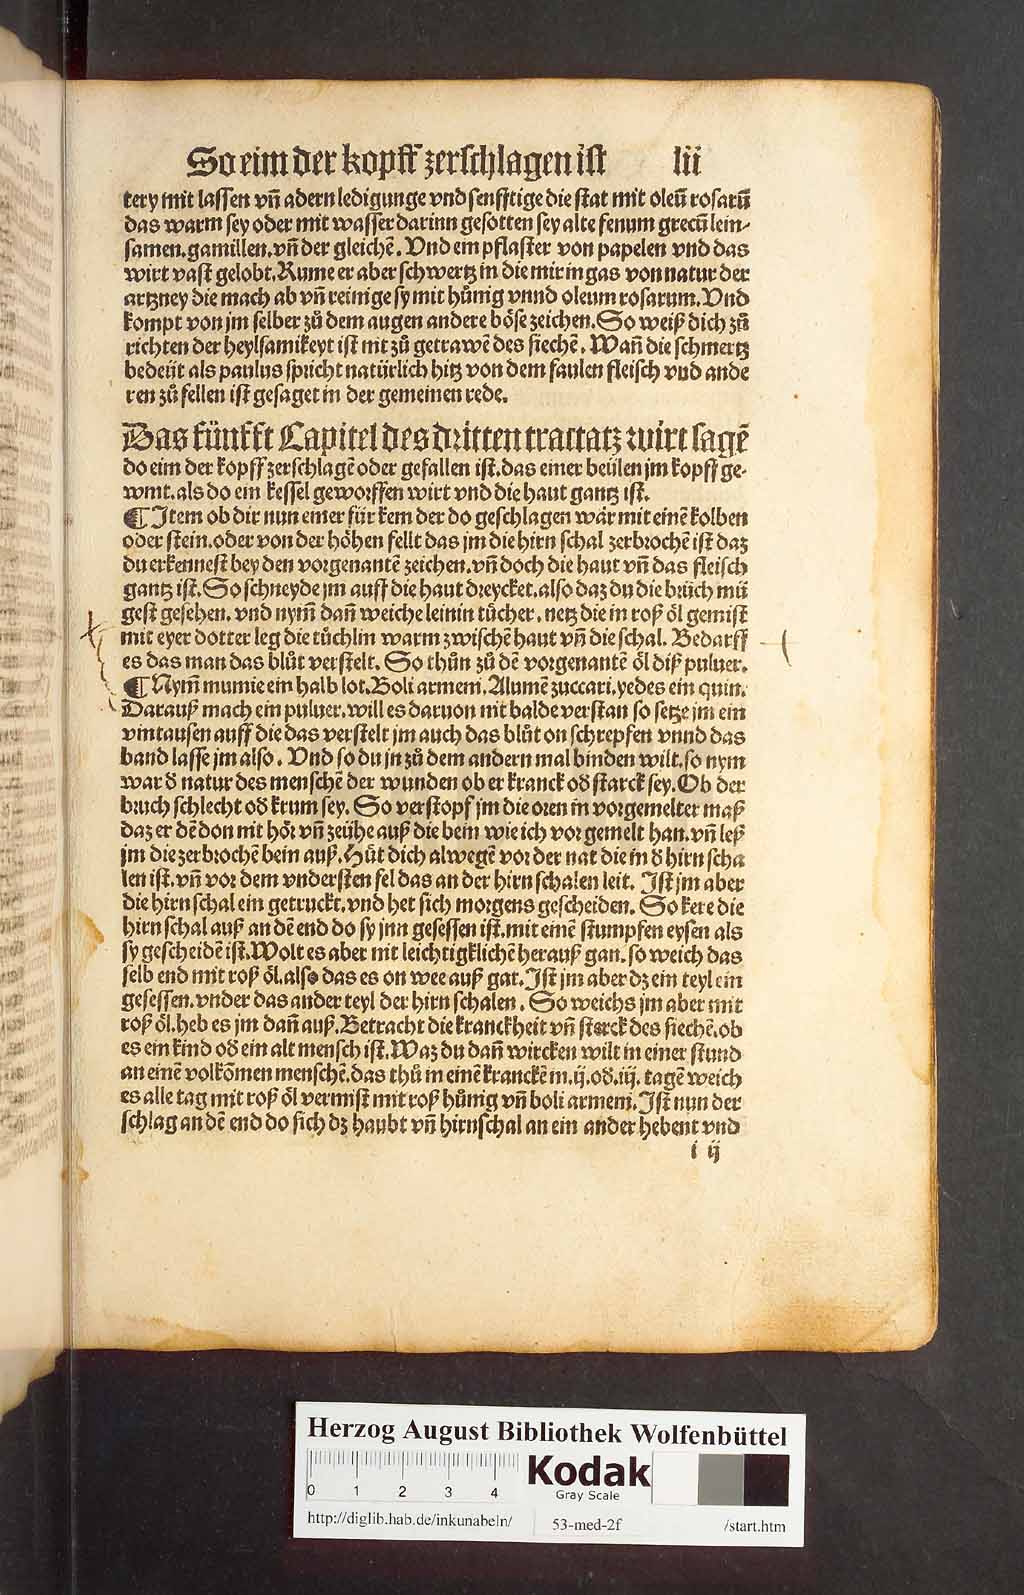 So eim der kopff zerschlagen ist lii
tery mit lassen vñ adern ledigunge vnd senfftige die stat mit oleū rosarū
das warm sey oder mit wasser darinn gesotten sey alte fenum grecū lein-
samen. gamillen. vñ der gleichē. Vnd ein pflaster von papelen vnd das
wirt vast gelobt. Rume er aber schwertz in die miringas von natur der
artzney die mach ab vñ reinige sy mit hůnig vnnd oleum rosarum. Vnd
kompt von jm selber zů dem augen andere böse zeichen. So weiß dich zů
richten der heylsamikeyt ist nit zů getrawē des siechē. Wañ die schmertz
bedeüt als paulus spricht natürlich hitz von dem faulen fleisch vnd ande
ren zů fellen ist gesaget in der gemeinen rede.
Das fünfft Capitel des dritten tractatz wirt sagē
do eim der kopff zerschlagē oder gefallen ist. das einer beülen jm kopff ge-
wint. als do ein kessel geworffen wirt vnd die haut gantz ist.
¶ Jtem ob dir nun einer für kem der do geschlagen wår mit einē kolben
oder stein. oder von der höhen fellt das jm die hirn schal zerbrochē ist daz
du erkennest bey den vorgenantē zeichen. vñ doch die haut vñ das fleisch
gantz ist. So schneyde jm auff die haut dreycket. also daz du die brüch mü
gest gesehen. vnd nym̄ dañ weiche leinin tůcher. netz die in roß öl gemist
mit eyer dotter leg die tůchlin warm zwischē haut vñ die schal. Bedarff
es das man das blůt verstelt. So thůn zů dē vorgenantē öl diß puluer.
¶ Nym̄ mumie ein halb lot. Boli armeni. Alumē zuccari. yedes ein quin.
Darauß mach ein puluer. will es daruon nit balde verstan so setze jm ein
vintausen auff die das verstelt jm auch das blůt on schrepfen vnnd das
band lasse jm also. Vnd so du jn zů dem andern mal binden wilt. so nym
war ð natur des menschē der wunden ob er kranck oð starck sey. Ob der
bruch schlecht oð krum sey. So verstopf jm die oren in vorgemelter maß
daz er dē don nit hör vñ zeühe auß die bein wie ich vor gemelt han. vñ leß
jm die zerbrochē bein auß. Hůt dich alwegē vor der nat die in ð hirn scha
len ist. vñ vor dem vndersten fel das an der hirn schalen leit. Jst jm aber
die hirn schal ein getruckt. vnd het sich morgens gescheiden. So kere die
hirn schal auß an dē end do sy jnn gesessen ist. mit einē stumpfen eysen als
sy gescheidē ist. Wolt es aber nit leichtigklichē herauß gan. so weich das
selb end mit roß öl. also das es on wee auß gat. Jst jm aber dz ein teyl ein
gesessen. vnder das ander teyl der hirn schalen. So weichs jm aber mit
roß öl. heb es jm dañ auß. Betracht die kranckheit vñ sterck des siechē. ob
es ein kind oð ein alt mensch ist. Waz du dañ wircken wilt in einer stund
an einē volkōmen menschē. das thů in einē kranckē in .ij. oð .iij. tagē weich
es alle tag mit roß öl vermist mit roß hůnig vñ boli armeni. Jst nun der
schlag an dē end do sich dz haubt vñ hirnschal an ein ander hebent vnd
i ij
Herzog August Bibliothek Wolfenbüttel
0 1 2 3 4
Kodak
Gray Scale
http://diglib.hab.de/inkunabeln/ 53-med-2f /start.htm